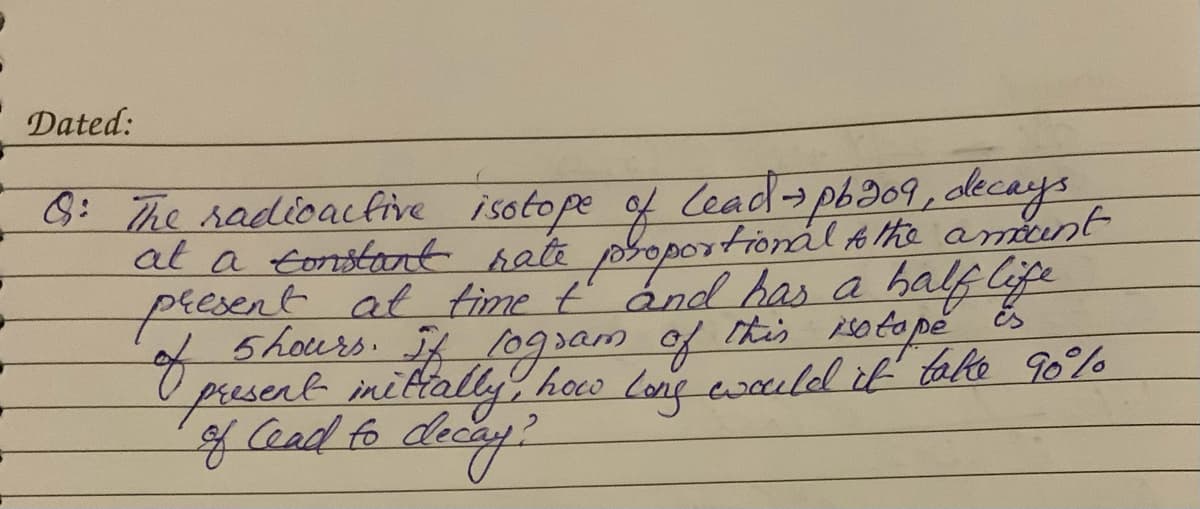 Dated:
Q: The radioactive isotope of lead → pb209, decays
at a constant rate proportional to the amount
present at time t and has a half life
of 5hours. If 10gram of this isotope is
present initially, how long would it take 90%
of lead to decay?